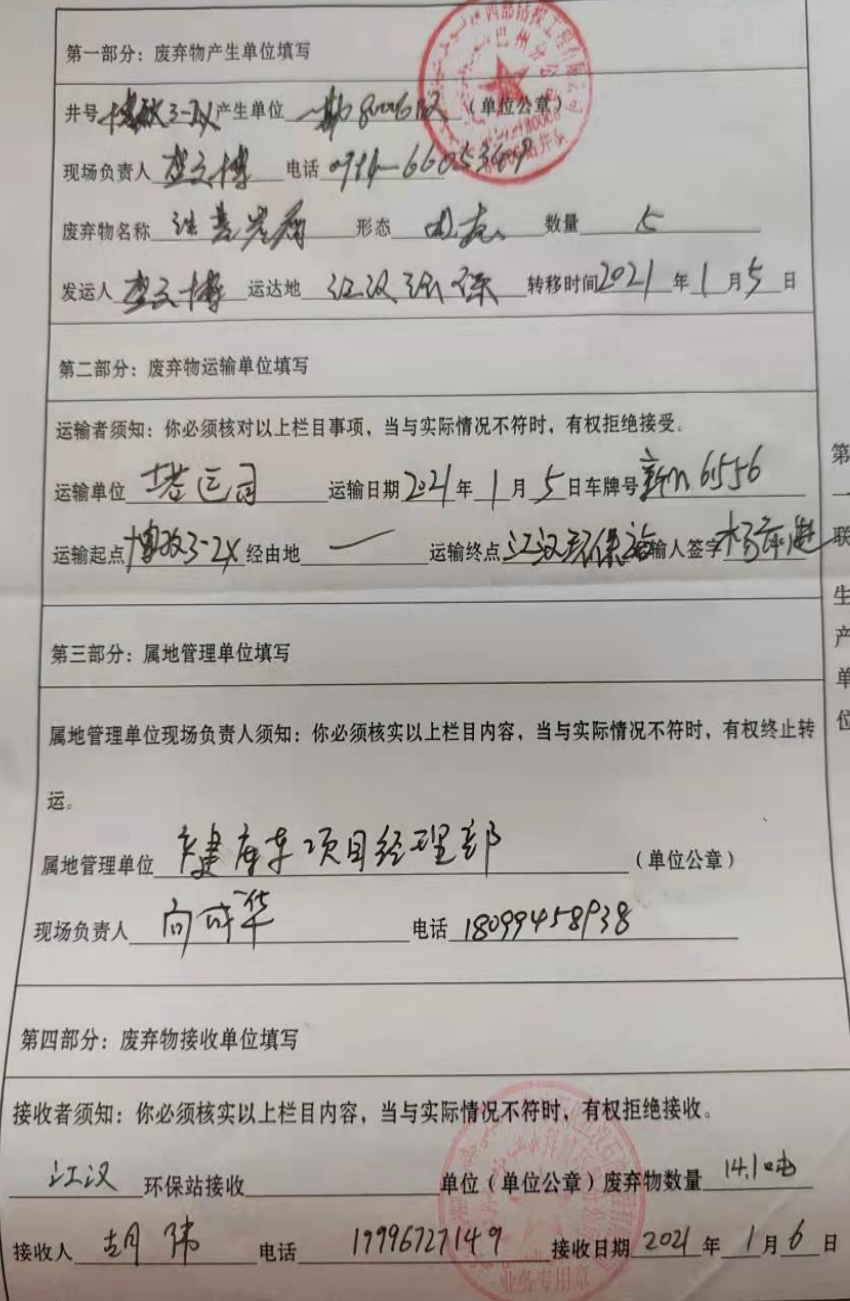 第一部分：废弃物产生单位填写
井号 3-2X 产生单位 （单位公章）
现场负责人 电话
废弃物名称 形态 固态 数量 5
发运人 运达地 江汉环保 转移时间 2021 年 1 月 5 日
第二部分：废弃物运输单位填写
运输者须知：你必须核对以上栏目事项，当与实际情况不符时，有权拒绝接受。
运输单位 塔运司 运输日期 2021 年 1 月 5 日 车牌号 新N 61556
运输起点 博孜3-2X 经由地 一 运输终点 江汉环保站 输人签字
第三部分：属地管理单位填写
属地管理单位现场负责人须知：你必须核实以上栏目内容，当与实际情况不符时，有权终止转
运。
属地管理单位 库车项目经理部 （单位公章）
现场负责人 向成华 电话 18099458938
第四部分：废弃物接收单位填写
接收者须知：你必须核实以上栏目内容，当与实际情况不符时，有权拒绝接收。
江汉 环保站接收 单位（单位公章）废弃物数量 14.1
接收人 胡伟 电话 19996727149 接收日期 2021 年 1 月 6 日
业务专用章
第
一
联
生
产
单
位